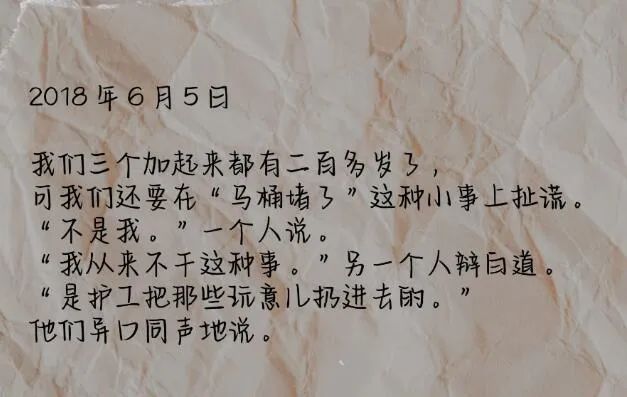 2018年6月5日
我们三个加起来都有二百多岁了，
可我们还要在“马桶堵了”这种小事上扯谎。
“不是我。”一个人说。
“我从来不干这种事。”另一个人辩白道。
“是护工把那些玩意儿扔进去的。”
他们异口同声地说。